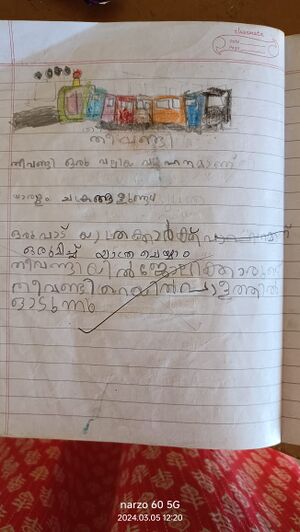 classmate
Date
Page
തീവണ്ടി
തീവണ്ടി ഒരു വലിയ വാഹനമാണ്
ധാരാളം ചക്രങ്ങളുണ്ട്
ഒരുപാട് യാത്രക്കാർക്ക്
ഒരുമിച്ച് യാത്ര ചെയ്യാം
തീവണ്ടിയിൽ
തീവണ്ടി റെയിൽ പാളത്തിൽ
ഓടുന്നു
narzo 60 5G
2024.03.05 12:20